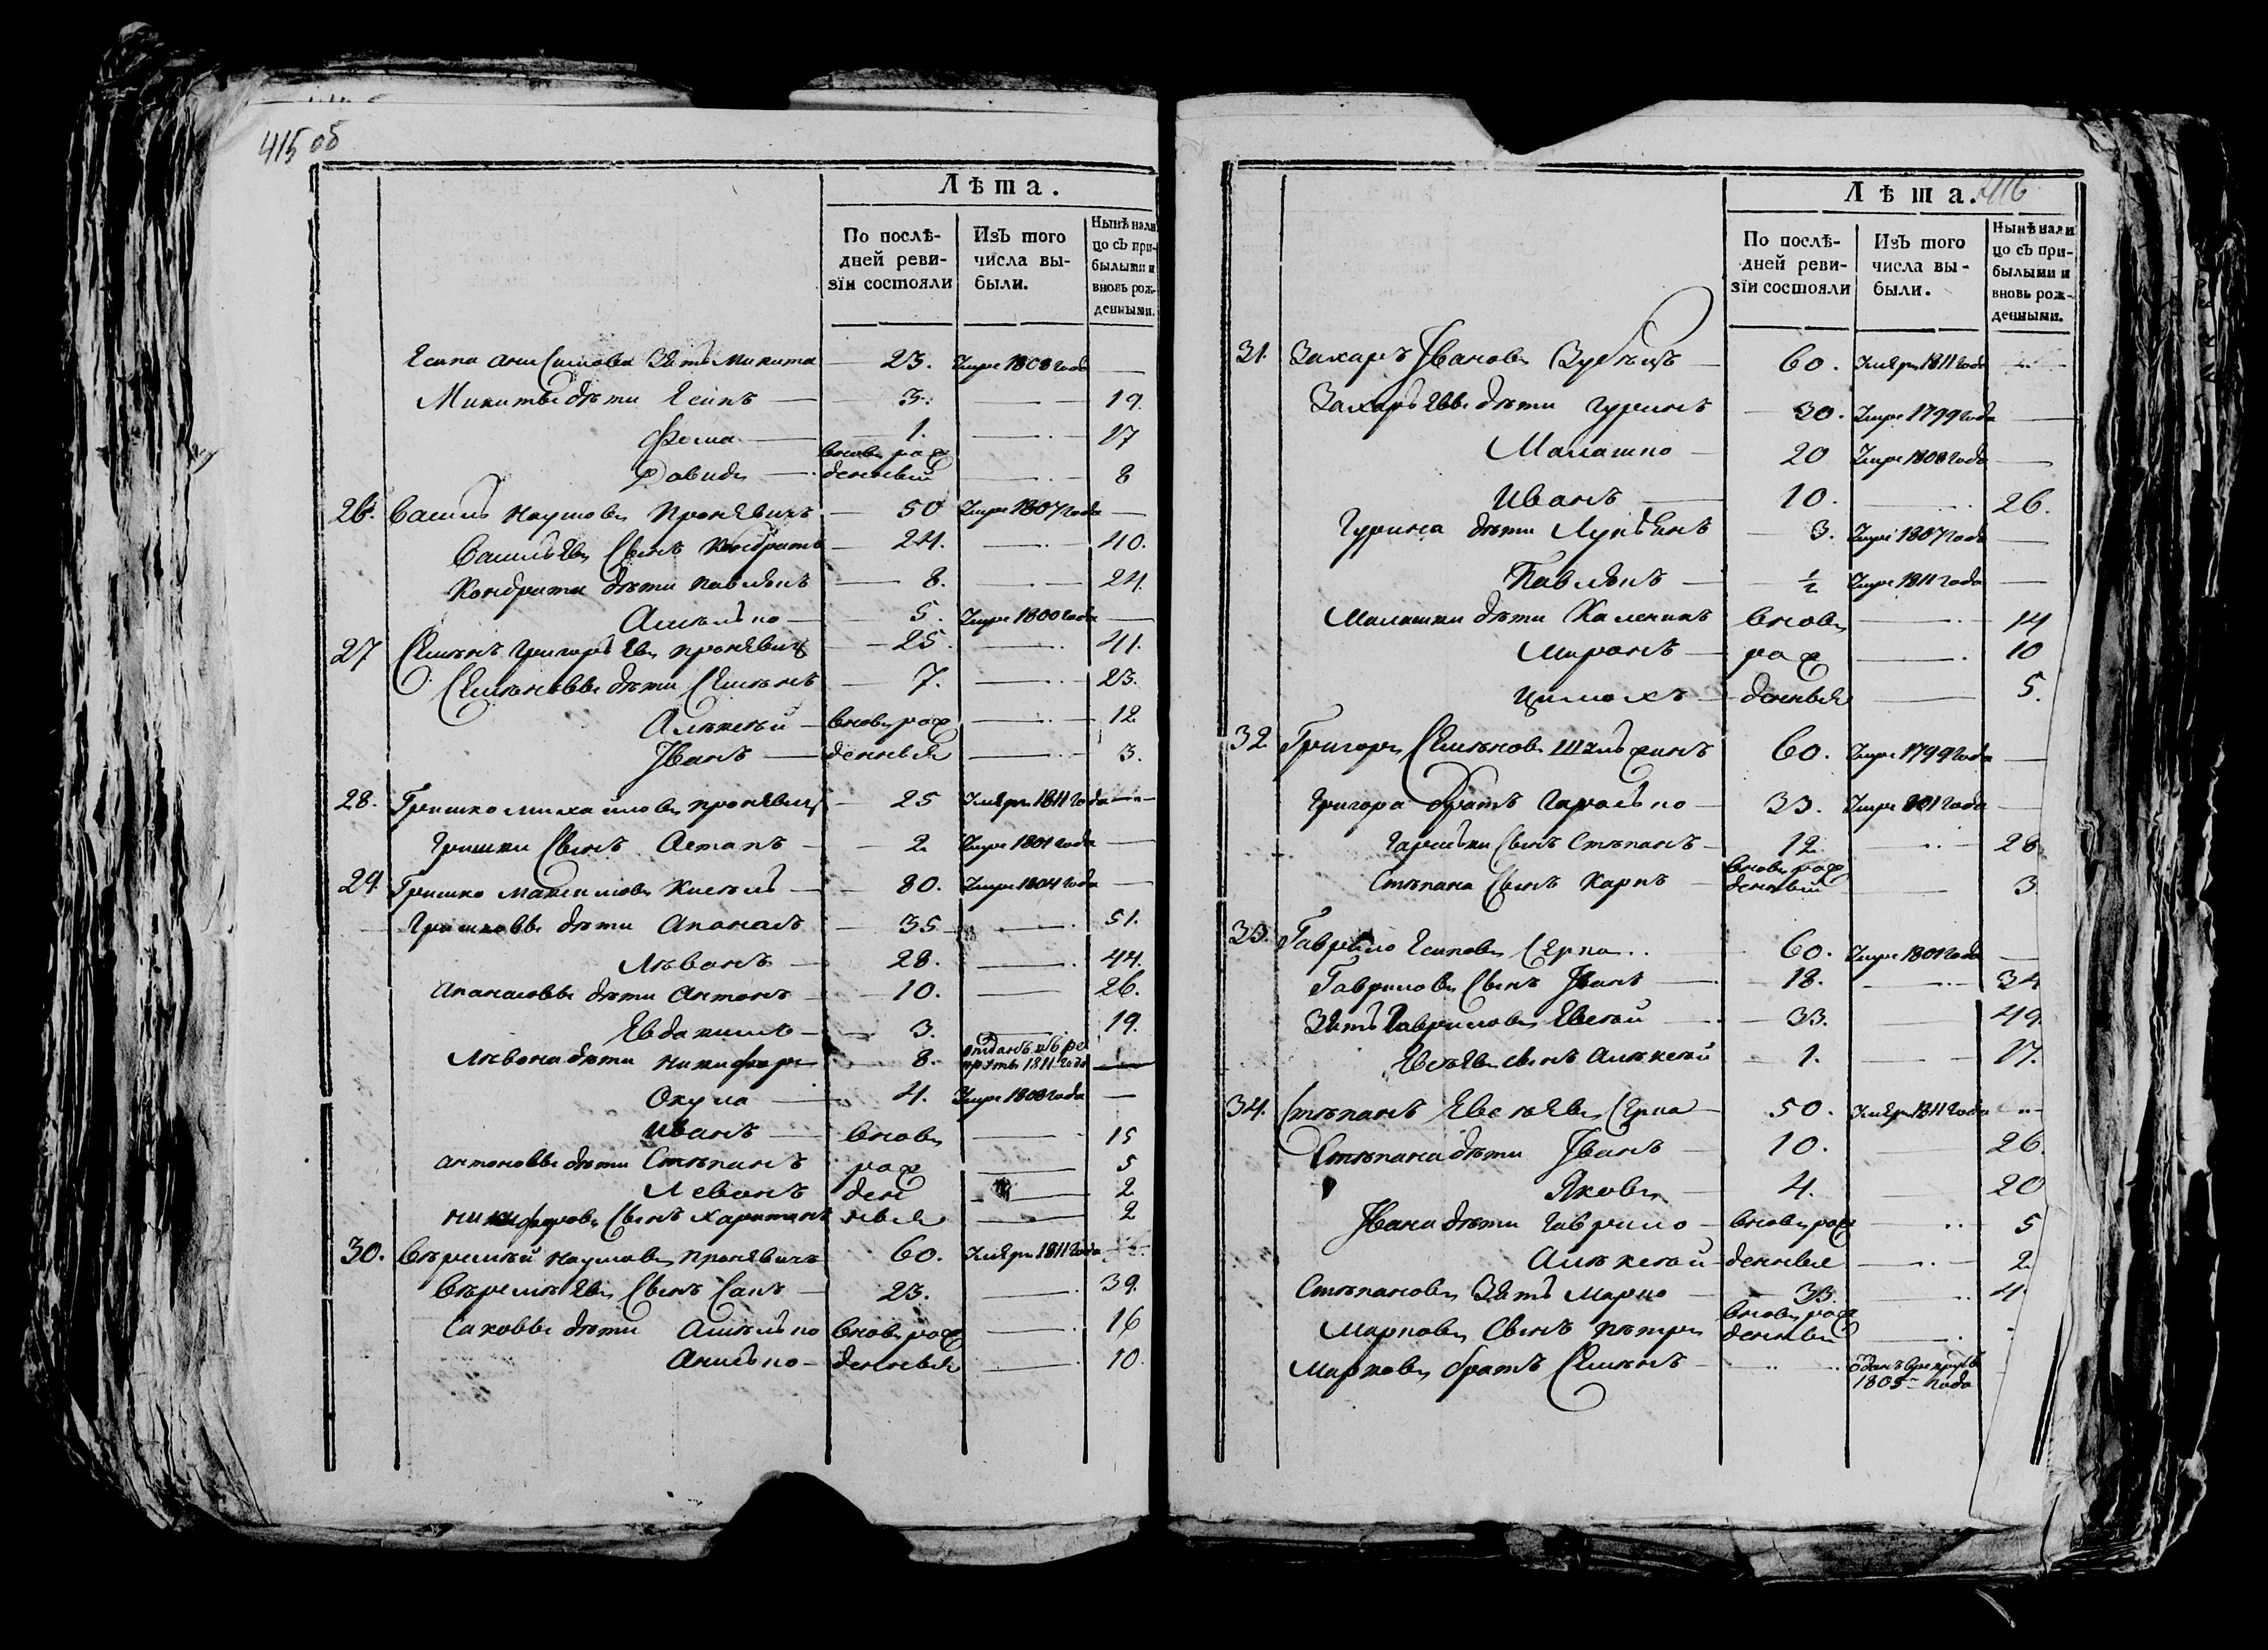 415 об
Лѣта.
По послѣдней ревизіи состояли
Изъ того числа выбыли.
Нынѣ налицо съ прибылыми и вновь рожденными.
Есипа Анисимова Зять Микита — 23. Умре 1808 года —
Микиты дѣти Есипъ — 3. — 19.
Фома — 1. — 17
Давидъ — вновь рожденный — 8
26. Василь Наумовъ Проневичъ — 50 Умре 1807 года —
Васильевъ Сынъ Кондратъ — 24. — 40.
Кондрата дѣти Павлюкъ — 8. — 24.
Амелько — 5. Умре 1800 года —
27 Семенъ Григорьевъ Проневичъ — 25. — 41.
Семеновы дѣти Семенъ — 7. — 23.
Алексей — вновь рож — 12
Иванъ — денные — 3.
28. Гришко Михайловъ Проневичъ — 25 Умеръ 1811 года —
Гришки Сынъ Астапъ — 2 Умре 1801 года —
29. Гришко Максимовъ Кисель — 80. Умре 1804 года —
Гришковы дѣти Апанасъ — 35 — 51.
Левонъ — 28. — 44.
Апанасовы дѣти Антонъ — 10. — 26.
Евдакимъ — 3. — 19.
Левона дѣти Никифоръ — 8. отданъ въ рекруты 1811 года —
Окула — 4. Умре 1808 года —
Иванъ — вновь — 15
Антоновы дѣти Степанъ рож — 5
Леванъ ден — 2
Никифоровъ Сынъ Харитонъ ные — 2
30. Еремей Наумовъ Проневичъ 60. Умеръ 1811 года —
Еремеевъ Сынъ Сакъ — 23. — 39.
Саковы дѣти Амелько вновь рож — 16
Анисько — денные — 10.
416
Лѣта.
По послѣдней ревизіи состояли
Изъ того числа выбыли.
Нынѣ налицо съ прибылыми и вновь рожденными.
31. Захаръ Ивановъ Зубецъ — 60. Умеръ 1811 года —
Захарьевы дѣти Гуринъ — 30. Умре 1799 года —
Малашко — 20 Умре 1808 года —
Иванъ — 10. — 26.
Гурина дѣти Лукьянъ — 3. Умре 1807 года —
Павлюкъ — ½ Умре 1811 года —
Малашки дѣти Каленикъ вновь — 14
Миронъ — рож — 10
Цимохъ — денные — 5.
32 Григорей Семеновъ 60. Умре 1799 года —
Григора братъ Гарасько — 33. Умре 801 года —
Гараськи Сынъ Степанъ — 12. — 28
Степана Сынъ Карпъ — вновь рожденный — 3
33. Гаврило Есиповъ Серпа 60. Умре 1801 года —
Гавриловъ Сынъ Иванъ — 18. — 34
Зять Гавриловъ Евсей — 33. — 49.
Евсеевъ сынъ Алексей — 1. — 17.
34. Степанъ Евсеевъ Серпа — 50. Умеръ 1811 года —
Степана дѣти Иванъ — 10. — 26.
Яковъ — 4. — 20
Ивана дѣти Гаврило — вновь рож — 5
Алексей — денные — 2
Степановъ Зять Марко — 33. — 4
Марковъ Сынъ Петръ вновь рожденный —
Марковъ братъ Семенъ — отданъ въ рекруты 1805 года